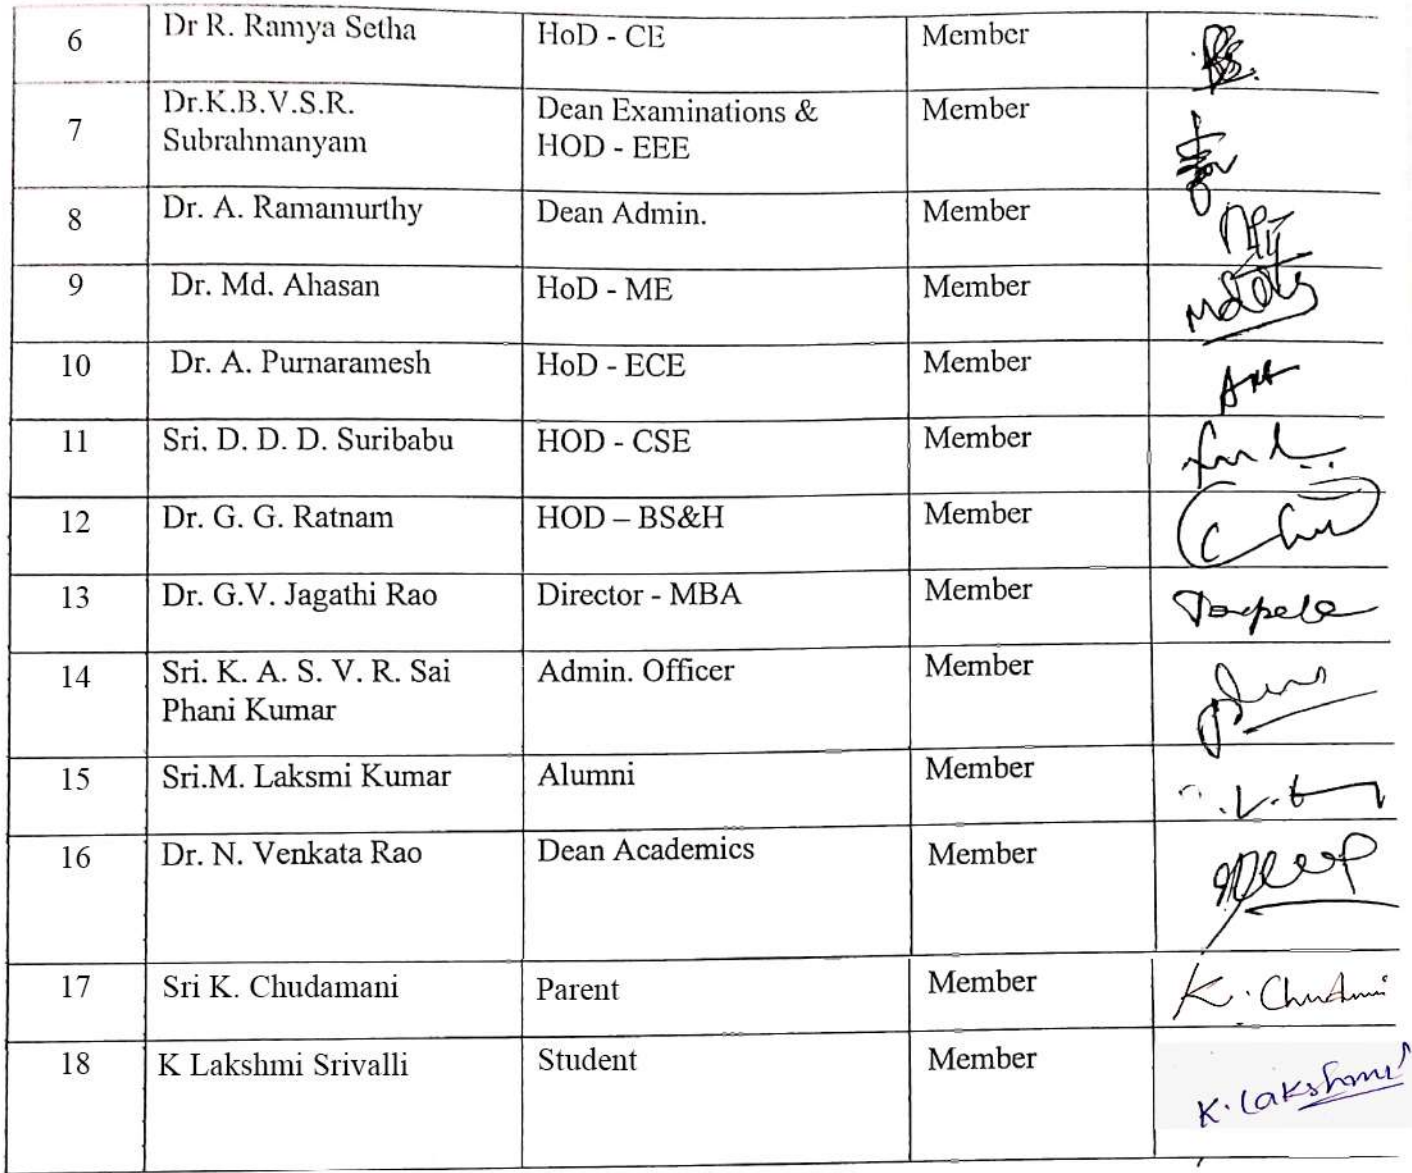 6 Dr R. Ramya Setha HoD - CE Member
7 Dr.K.B.V.S.R. Dean Examinations & Member
Subrahmanyam HOD - EEE
8 Dr. A. Ramamurthy Dean Admin. Member
9 Dr. Md. Ahasan HoD - ME Member
10 Dr. A. Purnaramesh HoD - ECE Member
11 Sri. D. D. D. Suribabu HOD - CSE Member
12 Dr. G. G. Ratnam HOD – BS&H Member
13 Dr. G.V. Jagathi Rao Director - MBA Member
14 Sri. K. A. S. V. R. Sai Admin. Officer Member
Phani Kumar
15 Sri.M. Laksmi Kumar Alumni Member
16 Dr. N. Venkata Rao Dean Academics Member
17 Sri K. Chudamani Parent Member K. Chudmi
18 K Lakshmi Srivalli Student Member K. Lakshmi